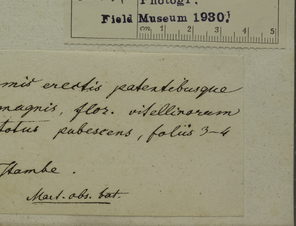 Photogr.
Field Museum 1930.
cm. 1 2 3 4 5
mis erectis patentibusque
magnis, flor. vitellinorum
totus pubescens, foliis 3-4
Mart. obs. bot.